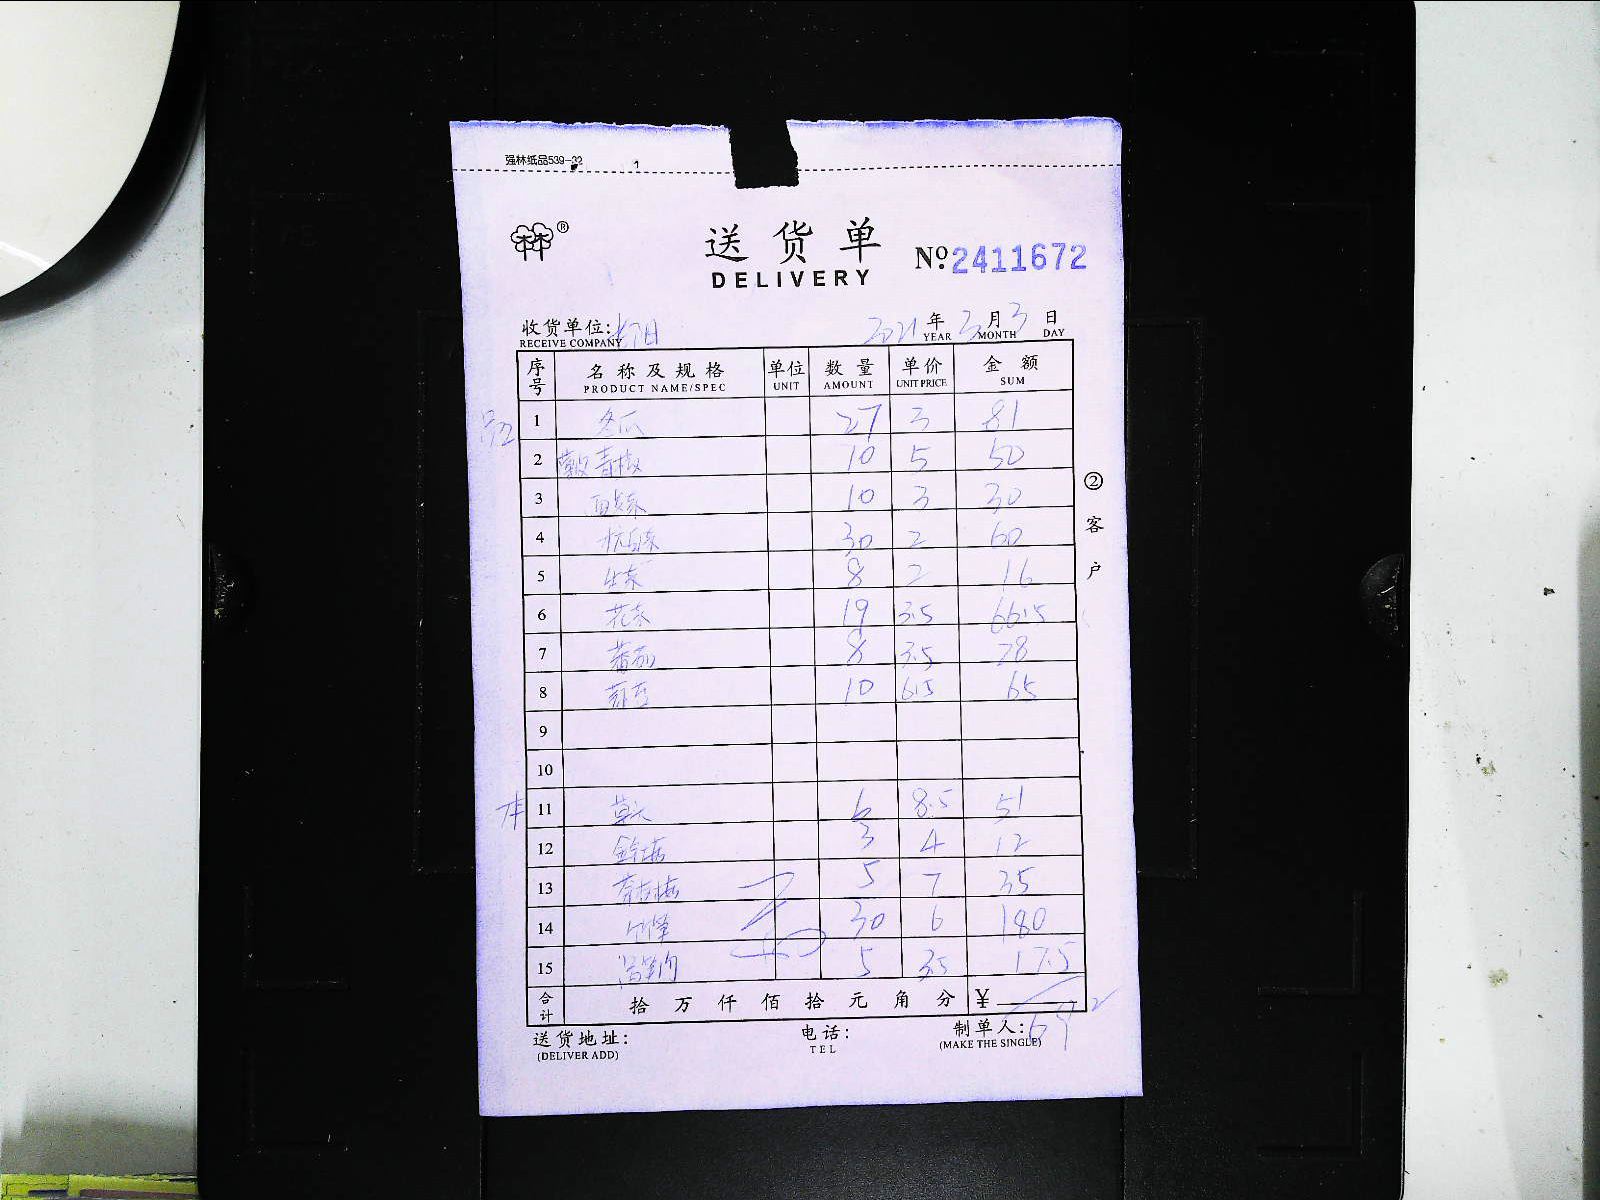 强林纸品539-32 1
送货单
DELIVERY
No. 2411672
收货单位:
RECEIVE COMPANY
2021年 3月 3日
YEAR MONTH DAY
序号 名称及规格 单位 数量 单价 金额
PRODUCT NAME/SPEC UNIT AMOUNT UNIT PRICE SUM
1 冬瓜 27 3 81
2 青椒 10 5 50
3 10 3 30
4 杭白菜 30 2 60
5 生菜 8 2 16
6 花菜 19 3.5 66.5
7 番茄 8 3.5 28
8 10 6.5 65
9
10
11 草头 6 8.5 51
12 3 4 12
13 5 7 35
14 30 6 180
15 5 3.5 17.5
合计 拾 万 仟 佰 拾 元 角 分 ¥
692
送货地址: 电话: 制单人:
(DELIVER ADD) TEL (MAKE THE SINGLE)
②客户